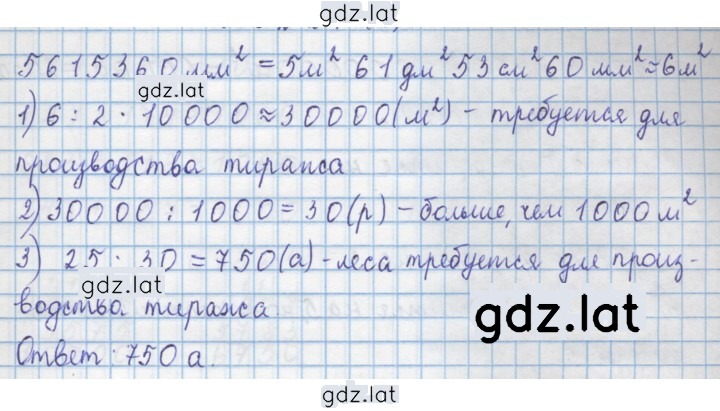 gdz.lat
5615360 мм² = 5м² 61 дм² 53 см² 60 мм² ≈ 6м²
gdz.lat
1) 6 : 2 · 10000 ≈ 30000 (м²) - требуется для
производства тиража
2) 30000 : 1000 = 30 (р) - больше, чем 1000 м²
3) 25 · 30 = 750 (а) - леса требуется для произ-
gdz.lat
водства тиража.
gdz.lat
Ответ: 750 а.
gdz.lat